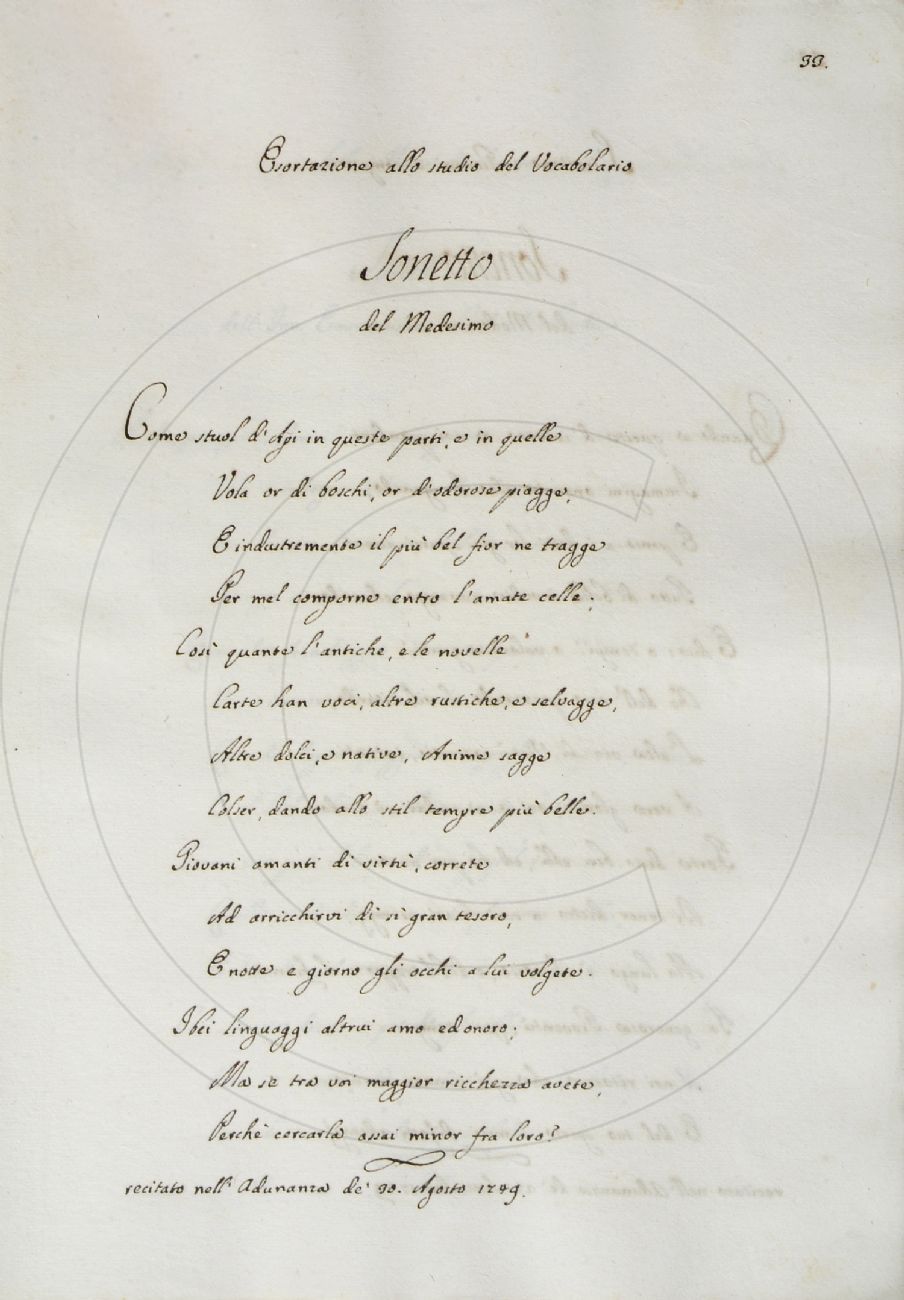 33.
Esortazione allo studio del Vocabolario
Sonetto
del Medesimo
Come stuol d'Api in queste parti, e in quelle
Vola or di boschi, or d'odorose piagge,
E industremente il più bel fior ne tragge
Per mel comporne entro l'amate celle;
Così quante l'antiche, e le novelle
Carte han voci, altre rustiche, e selvagge,
Altre dolci, e native, Anime sagge
Colser, dando allo stil tempre più belle.
Giovani amanti di virtù, correte
Ad arricchirvi di sì gran tesoro,
E notte e giorno gli occhi a lui volgete.
I bei linguaggi altrui amo ed onoro;
Ma se tra voi maggior ricchezza avete,
Perchè cercarla assai minor fra loro?
recitato nell' Adunanza de' 30. Agosto